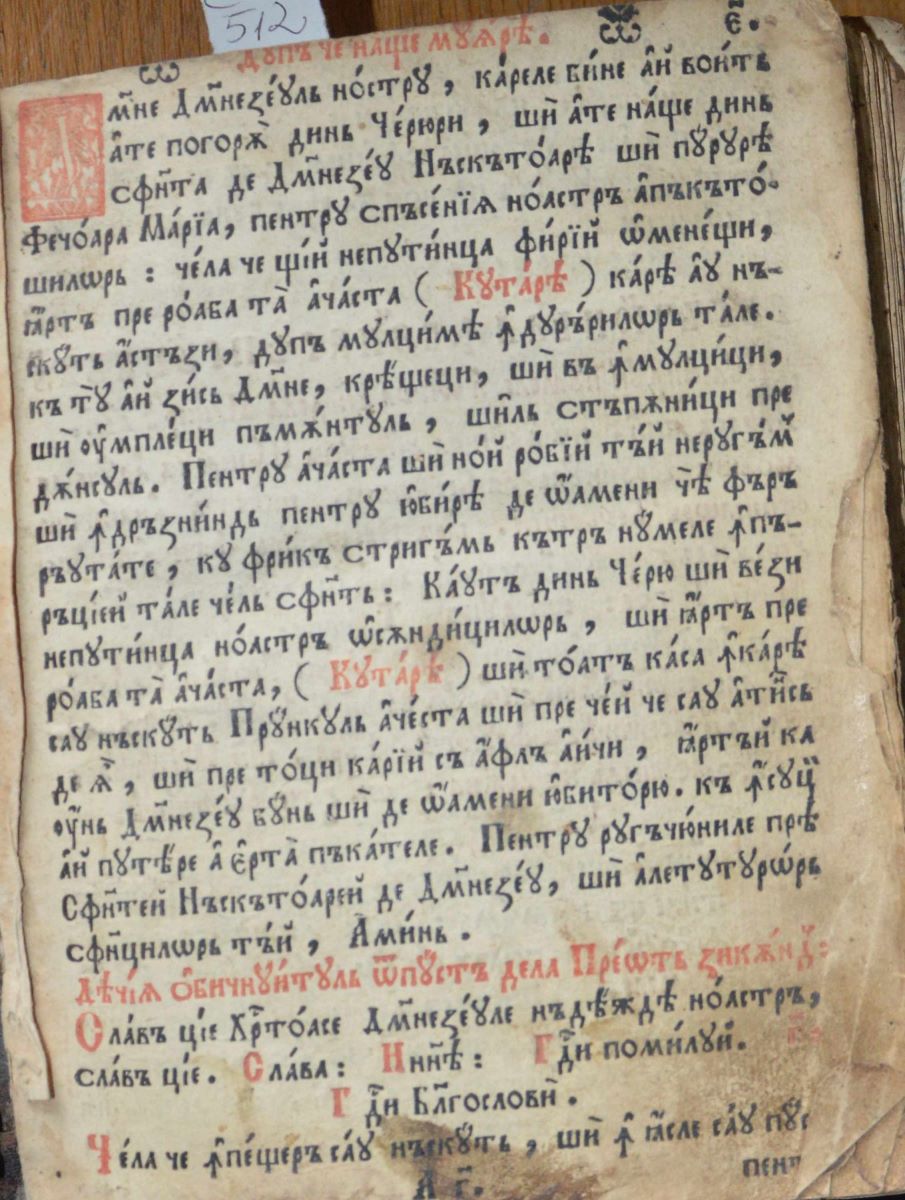 512
ДУПЪ ЧЕ НАЩЕ МУꙖ́РѢ.
Ѿ Е҃.
Дм҃не Дм҃незе́ꙋль но́стрꙋ, ка́реле би́не а҆́й вои́ть
а҆́те погорѫ̀ динь Че́рюри, шѝ а҆́те на́ще динь
сфн҃та де Дм҃незе́ꙋ Нъскъто́арѣ шѝ пꙋ́рꙋрѣ
Фечо́ара Марі́а, пентрꙋ спъсе́нїѧ но́астръ а҆пъкъто́-
шилѡрь : че́ла че щі́й непꙋти́нца фи́рїй ѡ҆мене́щи,
ꙗ҆́ртъ пре ро́аба та̀ а҆ча́ста ( Кꙋта́рѣ ) ка́рѣ а҆́ꙋ нъ-
скꙋ́ть а҆́стъзи, дꙋпъ мꙋлци́мѣ ꙟ҆дꙋръ́рилѡрь та́ле.
къ тꙋ̀ а҆́й зи́сь Дм҃не, крѣ́щеци, шѝ въ ꙟ҆мꙋлци́ци,
шѝ ᲂу҆мпле́ци пъмѫ́нтꙋль, ши҆́ль стъпѫни́ци пре
дѫ́нсꙋль. Пентрꙋ а҆ча́ста шѝ но́й ро́бїй тъ́й нерꙋгъ́мꙋ
шѝ ꙟ҆дръзни́ндь пентрꙋ ю҆би́рѣ де ѡ҆́амени чѣ̀ фъръ
ръꙋта́те, кꙋ фри́къ стригъ́мь кътръ нꙋ́меле ꙟ҆пъ-
ръці́ей та́ле че́ль сфн҃ть : Ка́ꙋтъ динь Че́рю шѝ ве́зи
непꙋти́нца но́астръ ѡ҆сѫнди́цилѡрь, шѝ ꙗ҆́ртъ пре
ро́аба та̀ а҆ча́ста, ( Кꙋта́рѣ ) шѝ то́атъ ка́са ꙟ҆ка́рѣ
саꙋ нъскꙋ́ть Прꙋ́нкꙋль а҆че́ста шѝ пре че́й че саꙋ а҆ти́нсь
де ꙗ҆̀, шѝ пре то́ци ка́рїй съ а҆́флъ а҆и́чи, ꙗ҆́ртъй ка
ᲂу҆́нь Дм҃незе́ꙋ бꙋ́нь шѝ де ѡ҆́амени ю҆бито́рю. къ ꙟ҆сꙋци
а҆́й пꙋтѣ́ре а҆ є҆рта̀ пъка́теле. Пентрꙋ рꙋгъчю́ниле прѣ
Сфн҃тей Нъскъто́арей де Дм҃незе́ꙋ, шѝ а҆летꙋтꙋрѡ́рь
сфн҃цилѡрь тъ́й, Ами́нь.
Дѣчі́ѧ ѻ҆бичнꙋи́тꙋль ѿпꙋ́стъ дела Пре́ѡть зикѫ́нд:
Сла́въ ці́е Хрⷭ҇то́асе Дм҃незе́ꙋле нъдѣ́ждѣ но́астръ,
сла́въ ці́е. Сла́ва : Ннн҃ѣ : Гдⷭ҇и поми́лꙋй.
Гдⷭ҇и Бл҃гословѝ.
Че́ла че ꙟ҆пе́щеръ са́ꙋ нъскꙋ́ть, шѝ ꙟ҆ ꙗ҆́сле са́ꙋ пꙋ́с
А г҃.